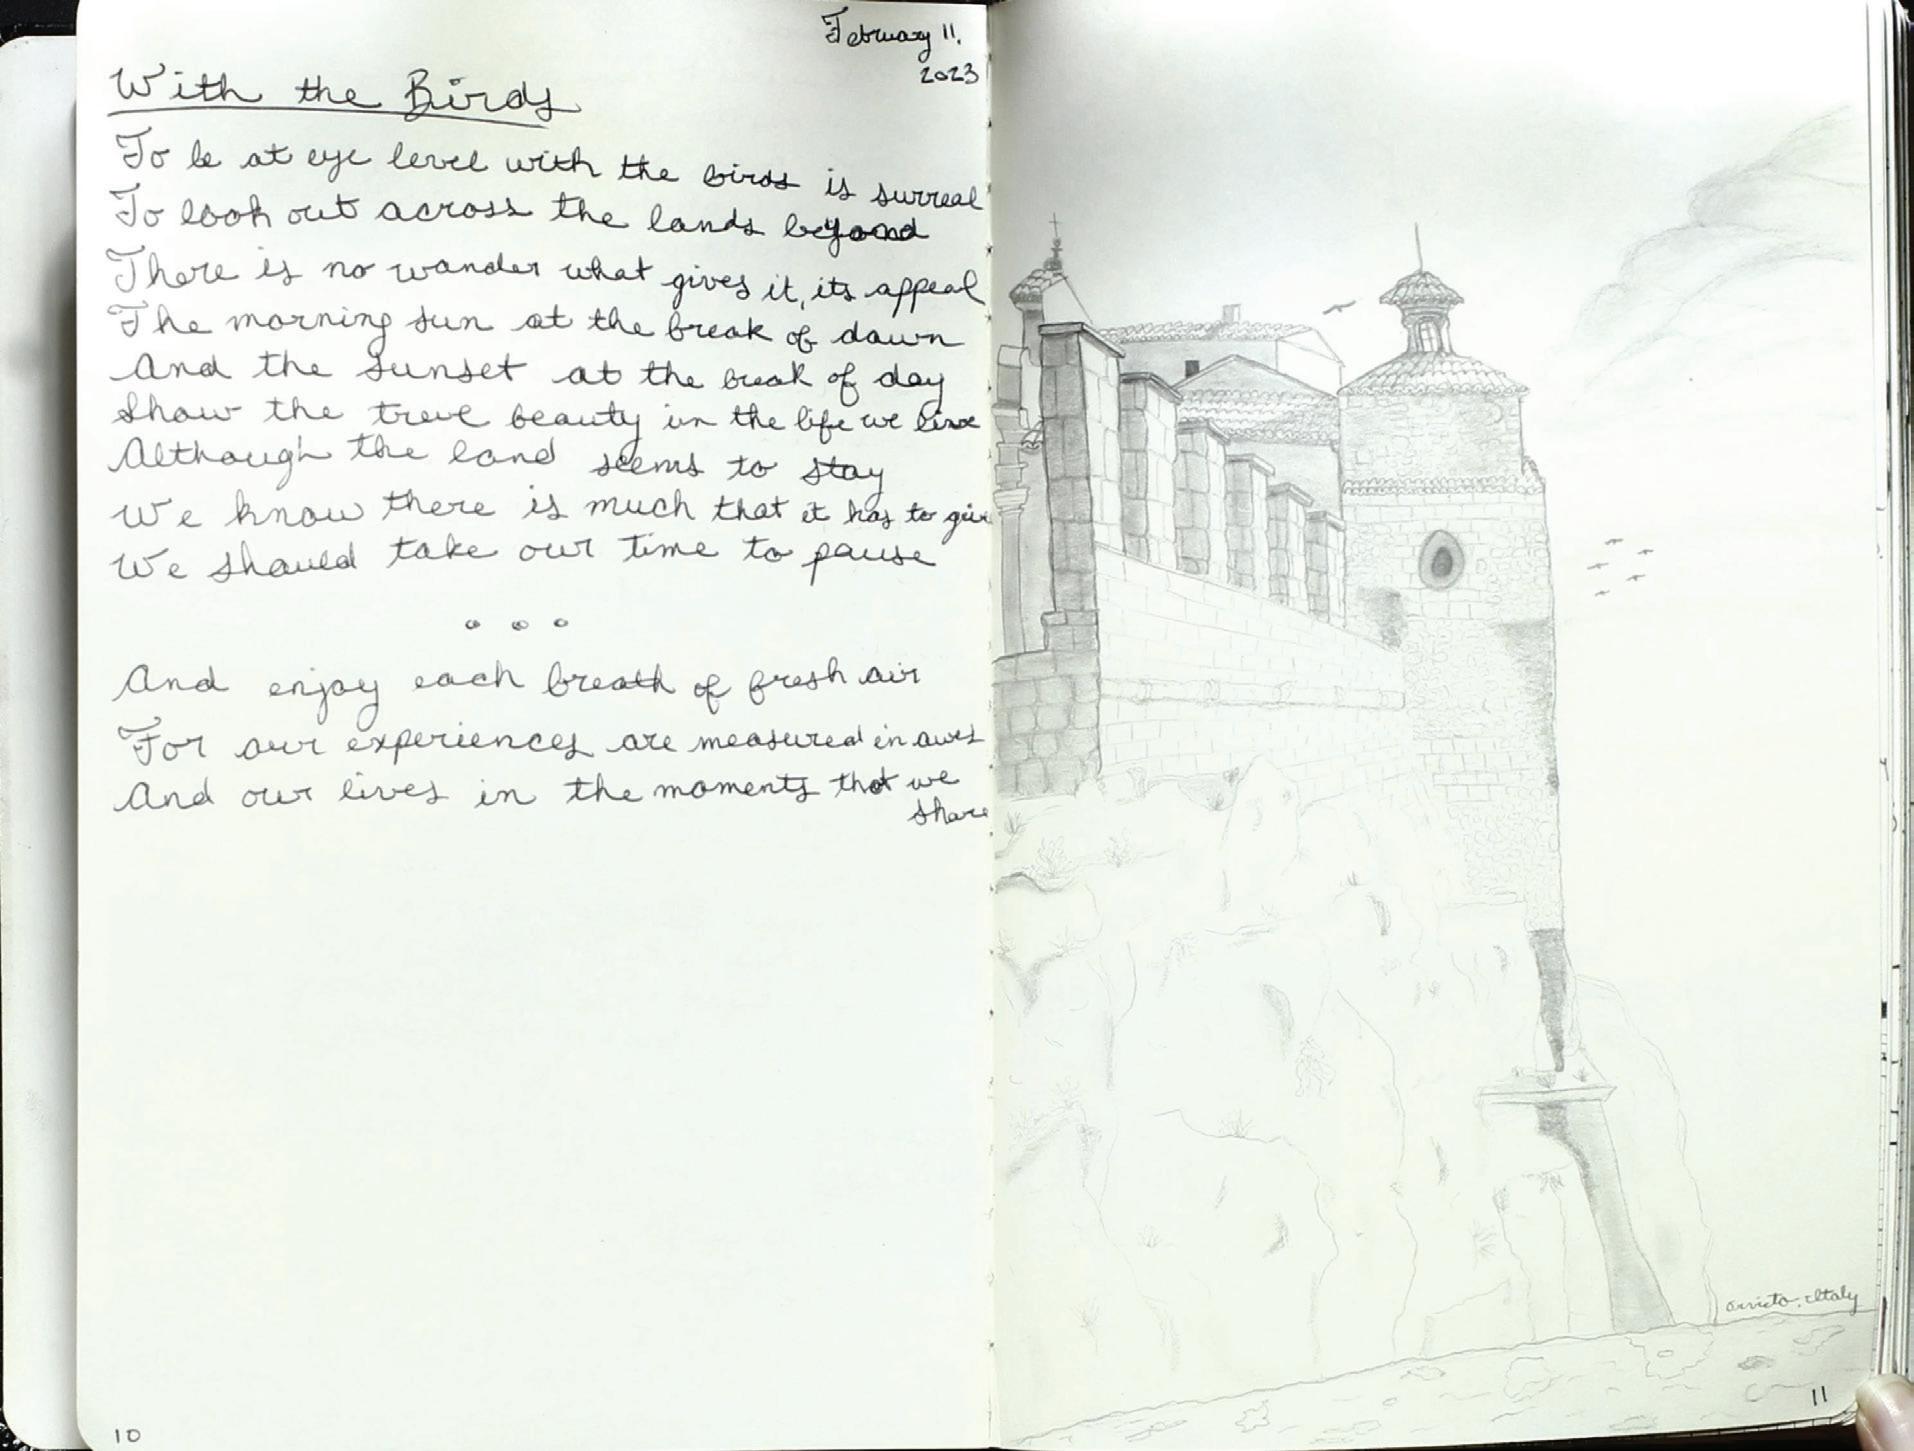 February 11,
2023
With the Birds
To be at eye level with the birds is surreal
To look out across the lands beyond
There is no wander what gives it, its appeal
The morning sun at the break of dawn
And the sunset at the break of day
Show the true beauty in the life we live
Although the land seems to stay
We know there is much that it has to give
We should take our time to pause
...
And enjoy each breath of fresh air
For our experiences are measured in awes
And our lives in the moments that we
share
10
Orvieto, Italy
11